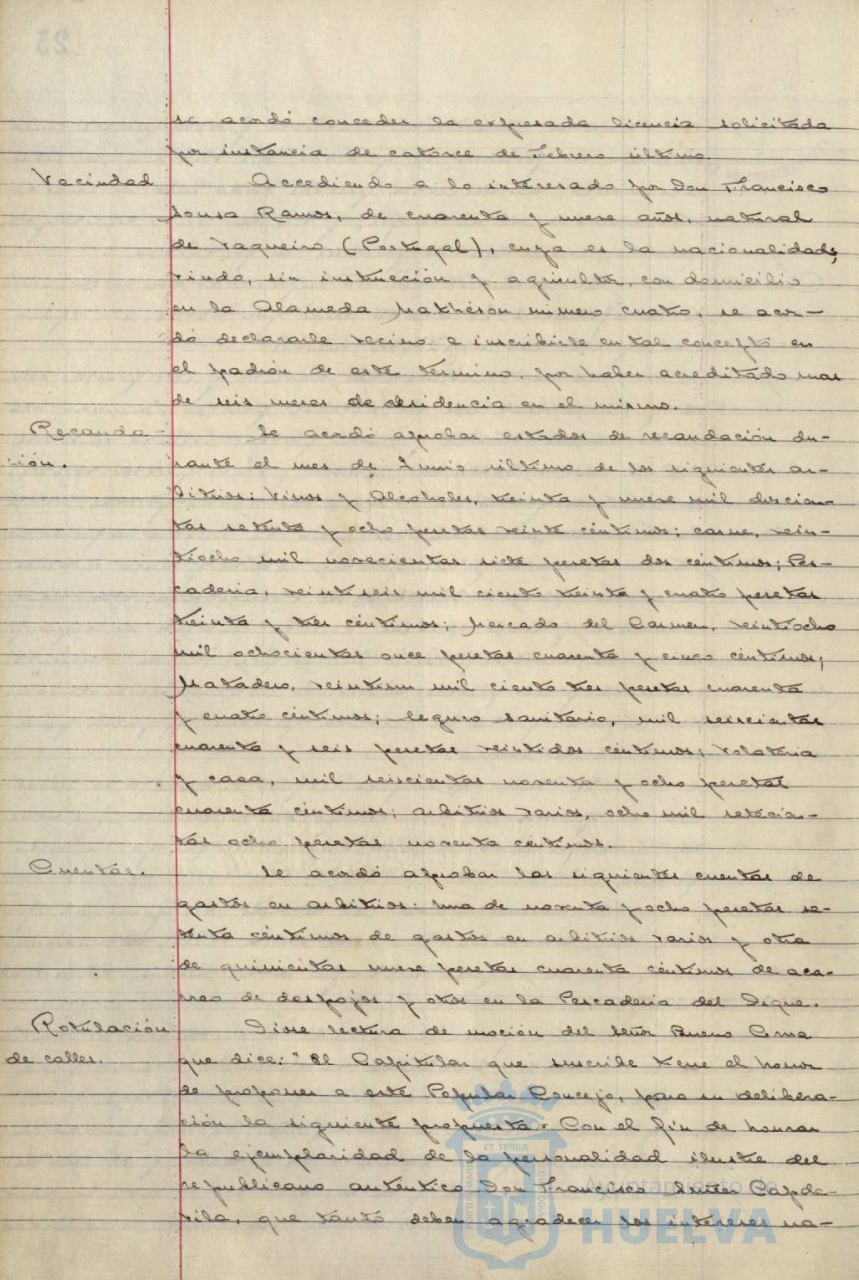 se acordó conceder la expresada licencia solicitada
por instancia de catorce de Febrero último.
Vecindad Accediendo a lo interesado por Don Francisco
Sousa Ramos, de cuarenta y nueve años, natural
de Vaqueiro (Portugal), cuya es la nacionalidad,
viudo, sin instrucción y agricultor, con domicilio
en la Alameda Mathéson número cuatro, se acor-
dó declararle vecino e inscribirle en tal concepto en
el padrón de este término, por haber acreditado mas
de seis meses de residencia en el mismo.
Recauda Se acordó aprobar estados de recaudación du-
ción. rante el mes de Junio último de los siguientes ar-
bitrios: Vinos y Alcoholes, treinta y nueve mil doscien-
tas setenta y ocho pesetas veinte céntimos; carne, vein-
tiocho mil novecientas siete pesetas dos céntimos; Pes-
cadería, veintiseis mil ciento treinta y cuatro pesetas
treinta y tres céntimos; Mercado del Carmen, veintiocho
mil ochocientas once pesetas cuarenta y cinco céntimos;
Matadero, veintiun mil ciento tres pesetas cuarenta
y cuatro céntimos; Seguro sanitario, mil seiscientas
cuarenta y seis pesetas veintidos céntimos; volatería
y casa, mil seiscientas noventa y ocho pesetas
cuarenta céntimos; arbitrios varios, ocho mil setecien-
tas ocho pesetas noventa céntimos.
Cuentas. Se acordó aprobar las siguientes cuentas de
gastos en arbitrios: una de noventa y ocho pesetas se-
tenta céntimos de gastos en arbitrios varios y otra
de quinientas nueve pesetas cuarenta céntimos de aca-
rreo de despojos y otros en la Pescadería del Dique.
Rotulación Dióse lectura de moción del Señor Bueno
de calles. que dice: "El Capitular que suscribe tiene el honor
de proponer a este Popular Concejo, para su delibera-
ción la siguiente propuesta = Con el fin de honrar
la ejemplaridad de la personalidad ilustre del
republicano auténtico Don Francisco Suñer Capde-
vila, que tanto deben agradecer los intereses na-
ET TERRAE
Ayuntamiento de
HUELVA